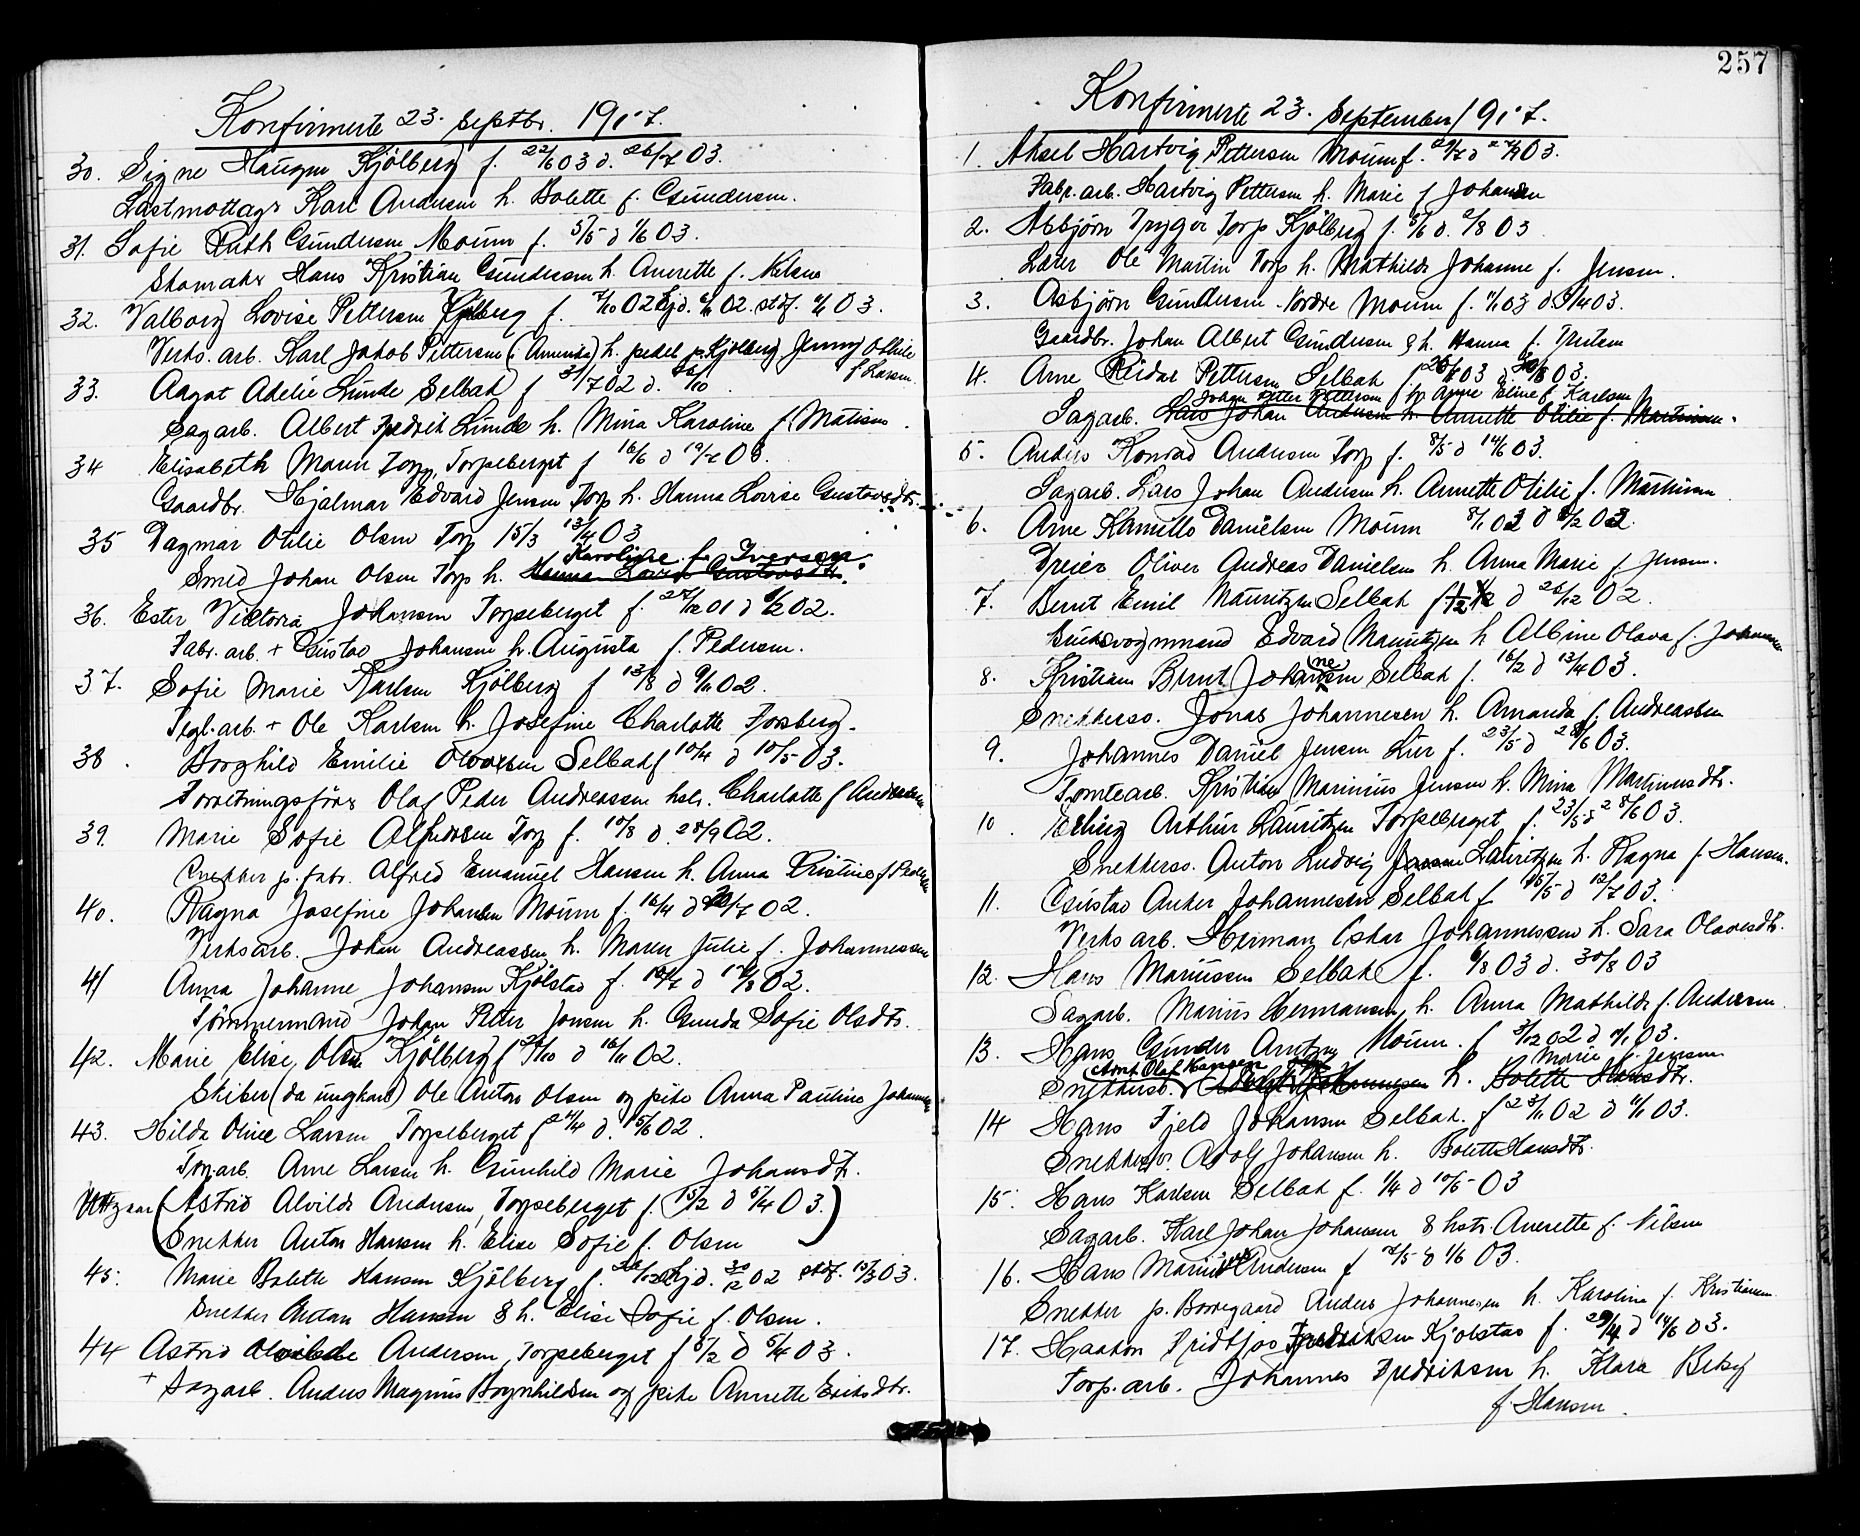 Konfirmerte 23. septbr. 1917.
30. Signe Haugen Kjölberg f. 22/6 03 d. 26/7 03.
Lastmottagr Karl Andersen h. Bolette f. Gundersen.
31. Sofie Ruth Gundersen Moum f. 5/5 d 1/6 03.
Skomaker Hans Kristian Gundersen h. Anerette f. Nilsen
32. Valborg Lovise Pettersen Kjölberg f. 7/10 02 hjd. 02 stdf. 03.
Verks. arb. Karl Jakob Pettersen (i Amerika) h. pedel p. Kjölberg Jenny Othilie
f Larsen.
33. Aagot Adelie Lunde Selbak f 31/7 02 d. 26/10
Sagarb. Albert Fredrik Lunde h. Mina Karoline f. Matisen.
34 Elisabeth Maren Torp, Torpeberget f 16/6 d 19/7 03.
Gaardbr. Hjalmar Edvard Jensen Torp h. Hanna Lovise Gustavsdtr.
35 Dagmar Otilie Olsen Torp 15/3 13/4 03
Karoline f. Iversen
Smed Johan Olsen Torp h. Hanna Lovise Gustavsdtr.
36. Ester Viktoria Johansen Torpeberget f. 27/12 01 d 9/2 02.
Fabr. arb. + Gustav Johansen h. Augusta f. Pedersen.
37. Sofie Marie Karlsen Kjölberg f 13/8 d 9/11 02.
Tegl. arb. + Ole Karlsen h. Josefine Charlotte Torsberg.
38. Borghild Emilie Olavesen Selbak f 10/4 d 10/5 03.
Forretningsförer Olaf Peder Andreassen hstr. Charlotte f Andreassen
39. Marie Sofie Alfredsen Torp f. 10/8 d. 28/9 02.
Snekker p. fabr. Alfred Emanuel Hansen h. Anna Kristine f Pedersen
40. Ragna Josefine Johansen Moum f. 16/4 d 20/7 02.
Verksarb. Johan Andreassen h. Maren Julie f. Johannessen
41 Anna Johanne Johansen Kjölstad f. 10/7 d 17/8 02.
Tömmermand Johan Peter Jonsen h. Gunda Sofie Olsdtr.
42. Marie Elise Olsen Kjölberg f /10 d 16/11 02.
Skiber (da ungkarl) Ole Anton Olsen og pike Anna Pauline Johannesen
43. Hilda Olive Larsen Torpeberget f 24/4 d. 15/6 02.
Torp. arb. Arne Larsen h. Gunhild Marie Johansdtr.
Utgaar (Astrid Alvilde Andersen, Torpeberget f. 15/2 d 5/4 03.)
(Snekker Anton Hansen h. Elise Sofie f. Olsen
45. Marie Bolette Hansen Kjölberg f. 26/10 hjd. 30/12 02 stdf. 15/3 03.
Snekker Anton Hansen & h. Elise Sofie f. Olsen.
44 Astrid Alvilde Andersen, Torpeberget f 8/2 d 5/4 03.
+ Sagarb. Anders Magnus Bognhildsen og pike Annette Eriksdtr.
257
Konfirmerte 23. September 1917.
1. Aksel Hartvig Pettersen Moum f. 29/7 d 27/9 03.
Fabr. arb. Hartvig Pettersen h. Marie f Johansen
2. Asbjörn Trygve Torp Kjölberg f. 5/6 d. 2/8 03
Lærer Ole Martin Torp h. Mathilde Johanne f. Jensen.
3. Asbjörn Gundersen Nordre Moum f. 4/1 03 d. 5/4 03.
Gaardbr. Johan Albert Gundersen & h. Hanna f. Nilsen
4. Arne Reidar Pettersen Selbak f. 26/ 03 d 30/8 03.
Johan Peter Pettersen h Anne Eline f. Karlsen
Sagarb. Lars Johan Andersen h. Annette Otilie f. Martinsen.
5. Anders Konrad Andersen Torp f. 8/5 d 14/6 03.
Sagarb. Lars Johan Andersen h. Annette Otilie f. Martinsen
6. Arne Kamillo Danielsen Moum 8/1 03 d 8/2 03.
Dreier Oliver Andreas Danielsen h. Anna Marie f Jensen.
7. Bernt Emil Mauritzen Selbak f 1/12 d 26/12 02.
Bruksvognmand Edvard Mauritzen h Albine Olava f. Johannesen
8. Kristian Bernt Johannesen Selbak f. 16/2 d 13/4 03.
Snekkersv. Jonas Johannesen h. Amanda f. Andreassen
9. Johannes Daniel Jensen Lier f. 23/5 d 28/6 03.
Tomtearb. Kristian Marinius Jensen h. Mina Martinusdtr.
10. Erling Arthur Lauritzen Torpeberget f. 23/5 d 28/6 03.
Snekkersv. Anton Ludvig Jensen Lauritzen h. Ragna f. Hansen.
11. Gustav Anker Johannesen Selbak f 15/5 d 12/7 03.
Verks arb. Herman Oskar Johannessen h. Sara Olavesdtr.
12. Hans Mariussen Selbak f. 9/8 03 d. 30/8 03
Sagarb. Marius Hermansen h. Anna Mathilde f. Andersen.
13. Hans Gunder Arntzen Moum. f 3/12 02 d 11/1 03.
Arnt Olaf Hansen Marie f. Jensen
Snekkersv. Adolf Johannesen h. Bolette Hansdtr.
14 Hans Fjeld Johansen Selbak. f 23/11 02 d 11/1 03.
Snekkersv. Adolf Johansen h. Bolette Hansdtr.
15. Hans Karlsen Selbak f. 1/4 d 10/5 03
Sagarb. Karl Johan Johansen & hstr. Anerette f. Nilsen
16. Hans Marius Andersen f 7/5 d 1/6 03.
Snekker p. Borregaard Anders Johannesen h. Karoline f. Kristiansen
17. Haakon Fridtjov Fredriksen Kjölstad f. 29/4 d 14/6 03.
Torp. arb. Johannes Fredriksen h. Klara Betsy
f. Hansen.